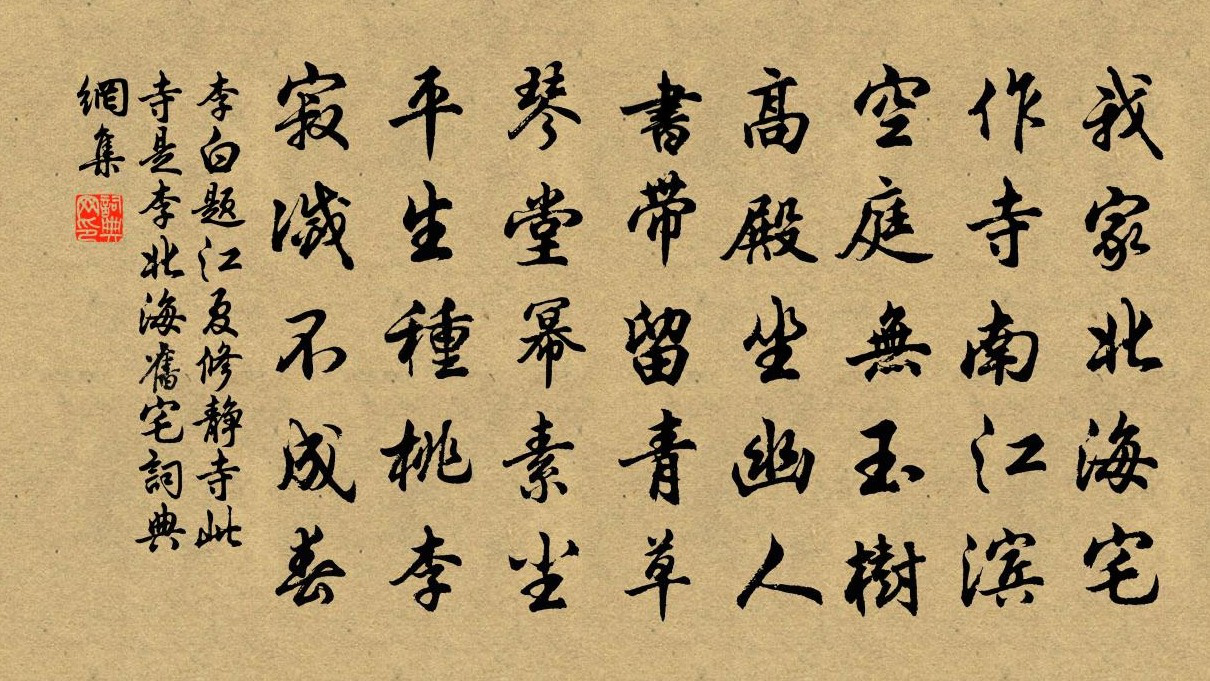 我家北海宅
作寺南江滨
空庭無玉樹
髙殿坐幽人
書帶留青草
琴堂幂素尘
平生種桃李
寂滅不成春
李白题江夏修静寺此
寺是李北海舊宅詞典
網集
詞典
网印